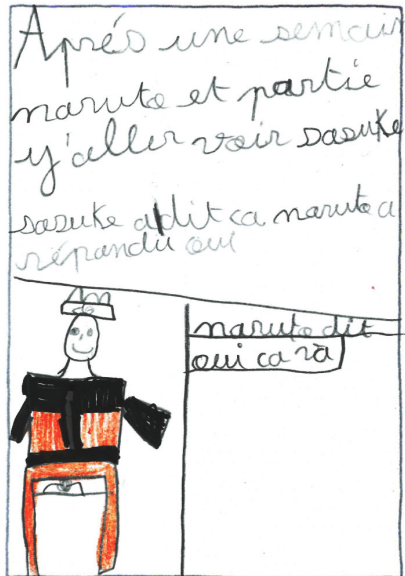 Après une semain
naruto et partie
y'aller voir sasuke
sasuke a dit ca naruto a
répandu oui
naruto dit
oui ca va